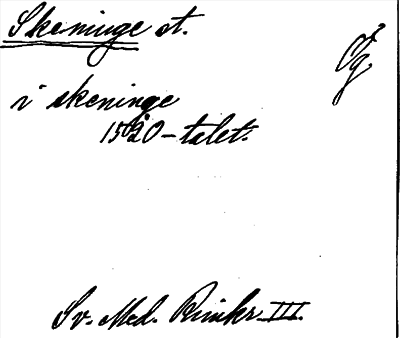 Skeninge st.
Ög
i skeninge
1520-talet.
Sv. Med. Rimkr. III.